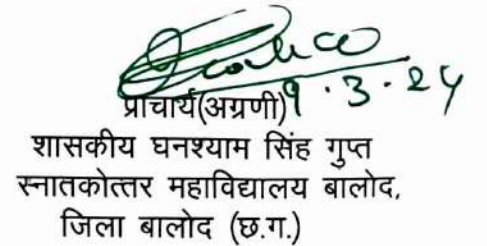 प्राचार्य(अग्रणी)
9.3.24
शासकीय घनश्याम सिंह गुप्त
स्नातकोत्तर महाविद्यालय बालोद,
जिला बालोद (छ.ग.)